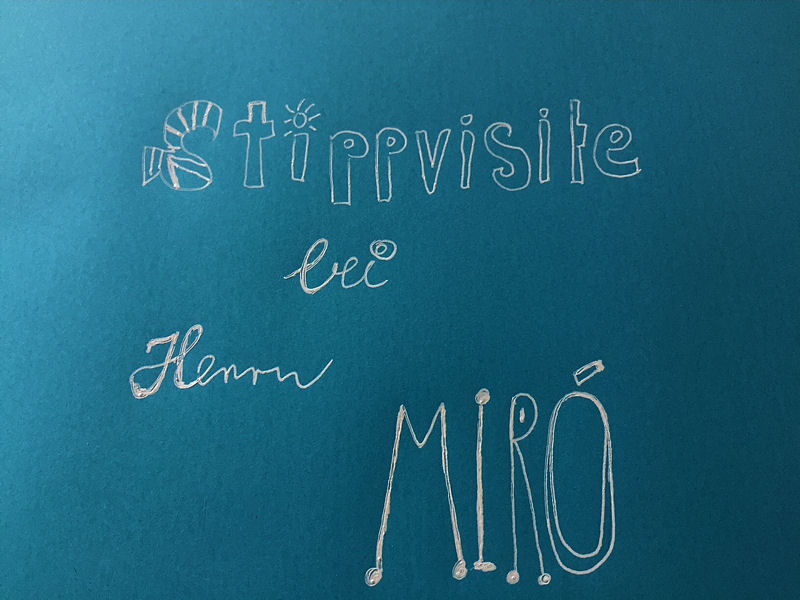 Stippvisite
bei
Herrn
MIRÓ